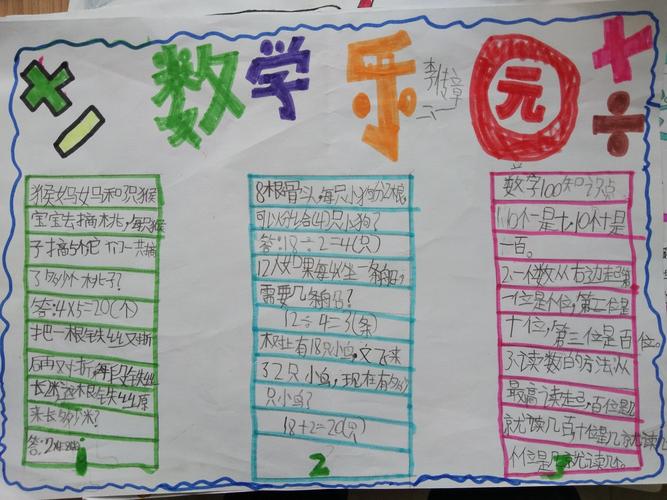 数学乐元
李传章
猴妈妈和3只猴
宝宝去摘桃,每只猴
子摘5个它们一共摘
了多少个桃子?
答:4x5=20(个)
把一根铁丝对折
后再对折,
长米这根铁丝原
来长多少米?
答:
1
8根骨头,每只小狗分2根,
可以分给(4)只小狗?
答:18÷2=4(只)
12人如果每坐一条船,
需要几条船?
12÷4=3(条)
树上有18只小鸟,又飞来
32只小鸟,现在有多少
只小鸟?
18+2=20(只)
2
数字100知识点
1.10个一是十,10个十是
一百。
2.一个数从右边起第
一位是个位,第二位是
十位,第三位是百位。
3.读数的方法从
最高读起,百位是几
就读几百,十位是几就读几
个位是几就读几。
3